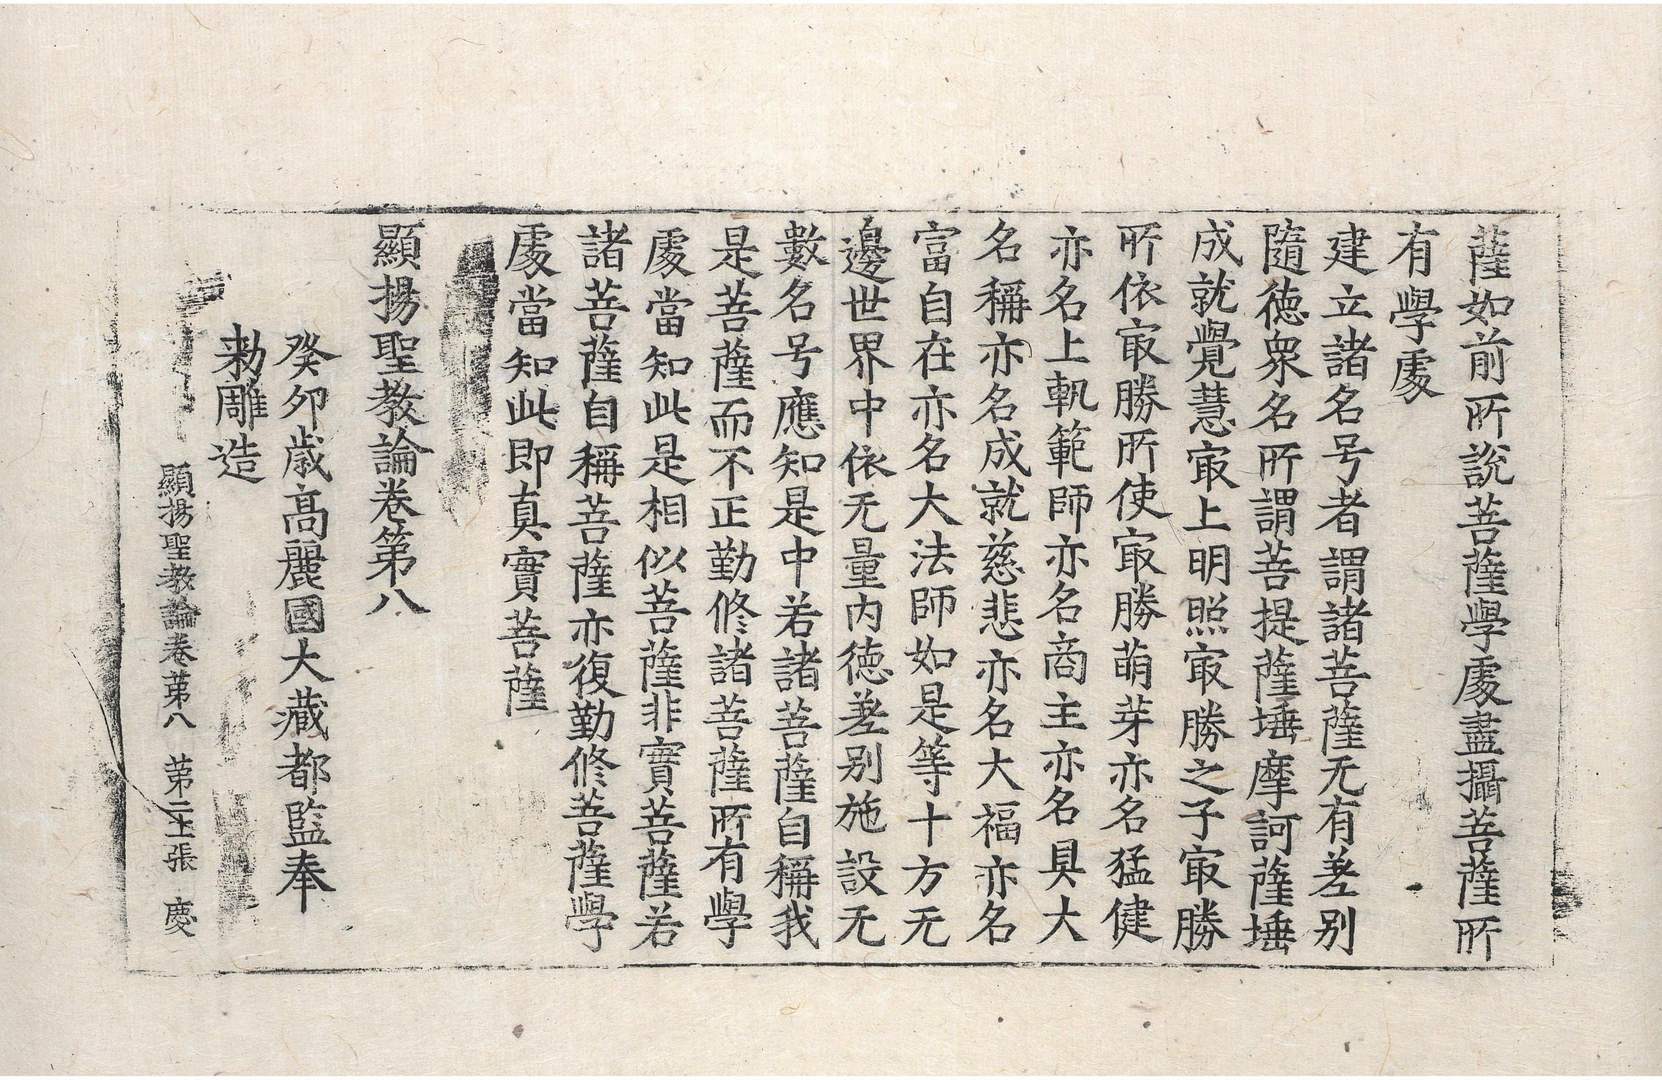 薩如前所說菩薩學處盡攝菩薩所
有學處
建立諸名号者謂諸菩薩无有差别
隨德衆名所謂菩提薩埵摩訶薩埵
成就覺慧㝡上明照㝡勝之子㝡勝
所依㝡勝所使㝡勝萌芽亦名猛健
亦名上軌範師亦名商主亦名具大
名稱亦名成就慈悲亦名大福亦名
富自在亦名大法師如是等十方无
邊世界中依无量內德差别施設无
數名号應知是中若諸菩薩自稱我
是菩薩而不正勤修諸菩薩所有學
處當知此是相似菩薩非實菩薩若
諸菩薩自稱菩薩亦復勤修菩薩學
處當知此即真實菩薩
顯揚聖教論卷第八
癸卯歲高麗國大藏都監奉
勑雕造
顯揚聖教論卷第八 第二十張 慶